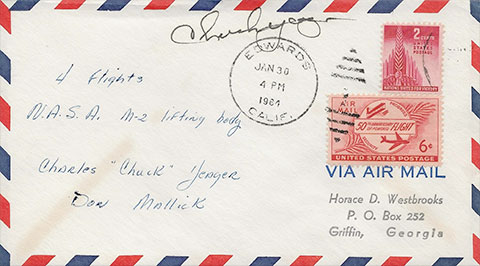 Chuck Yeager
EDWARDS
JAN 30
4 PM
1964
CALIF.
2 CENTS
UNITED STATES
POSTAGE
NATIONS UNITED FOR VICTORY
AIR
MAIL
50TH ANNIVERSARY
OF POWERED FLIGHT
6¢
UNITED STATES POSTAGE
VIA AIR MAIL
4 flights
N.A.S.A. M-2 lifting body
Charles "Chuck" Yeager
Don Mallick
Horace D. Westbrooks
P. O. Box 252
Griffin, Georgia